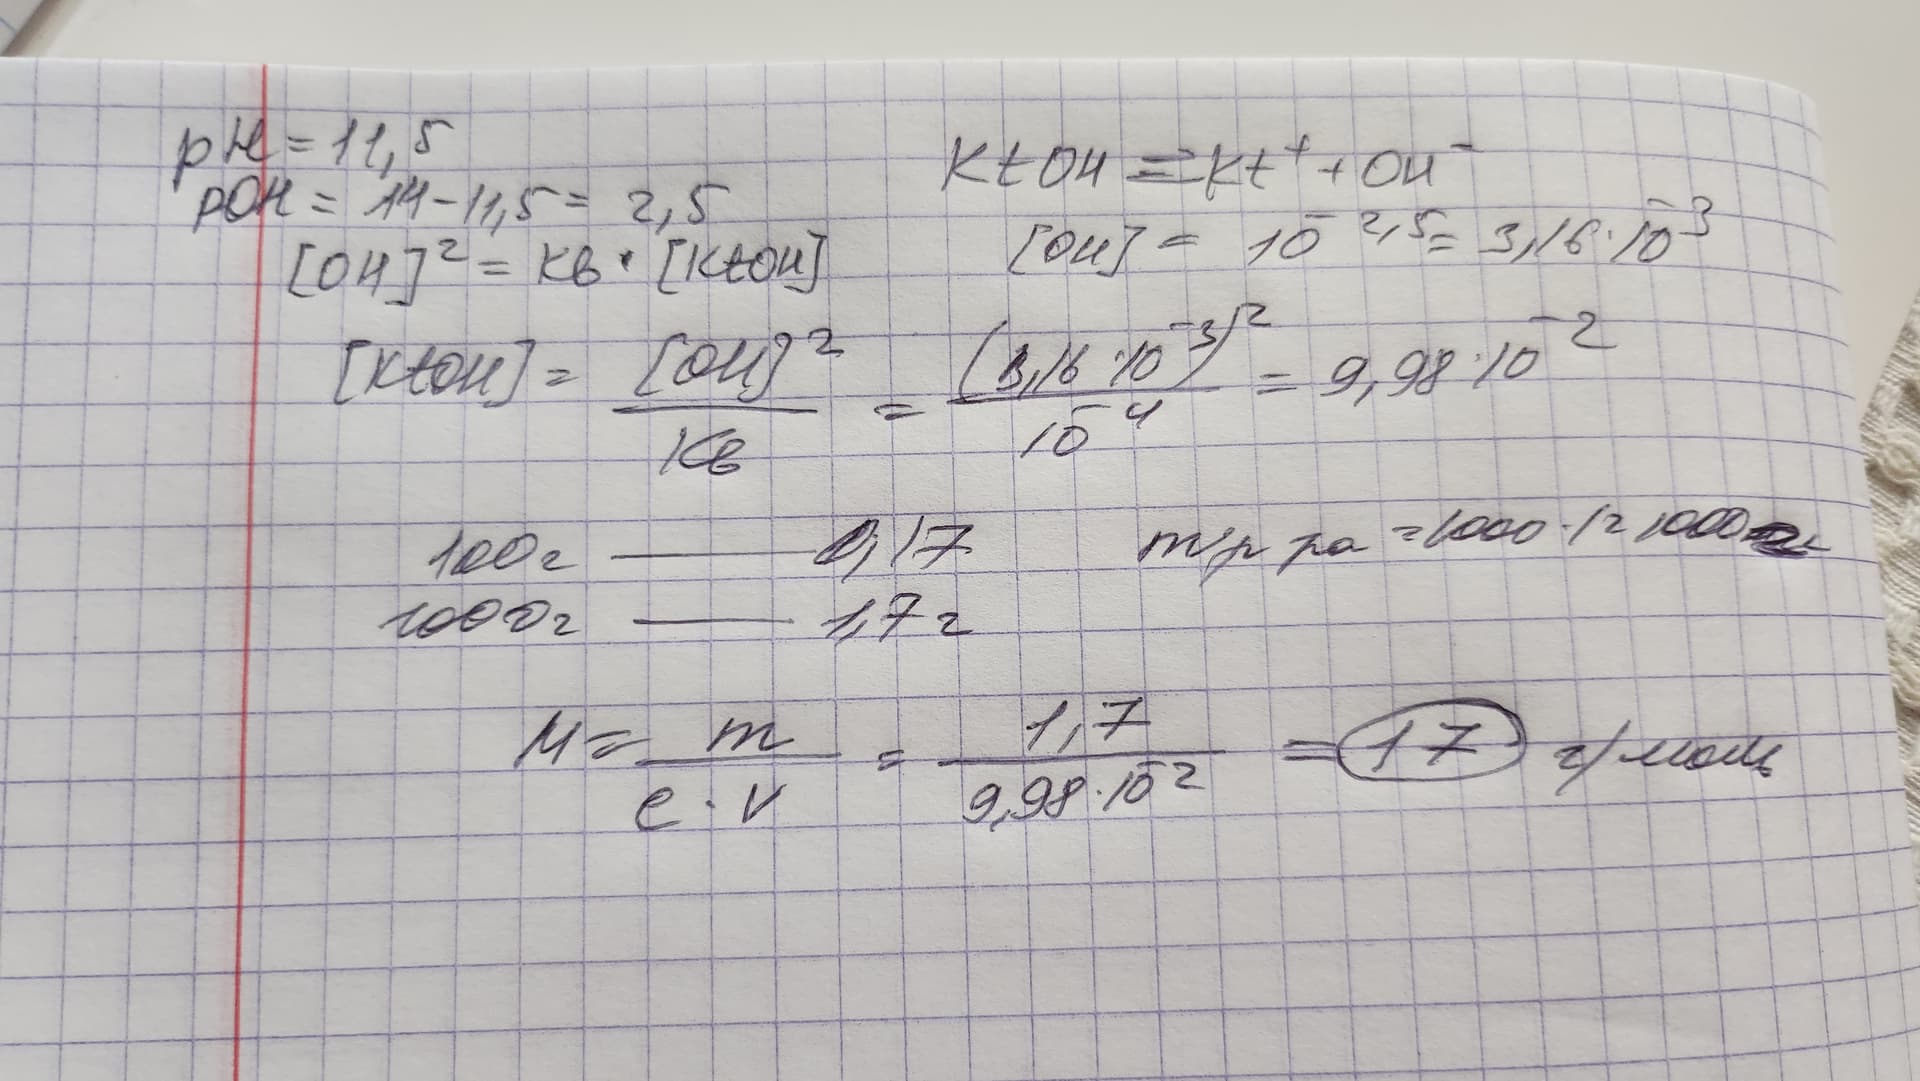 pH = 11,5
pOH = 14 - 11,5 = 2,5
KtOH ⇌ Kt⁺ + OH⁻
[OH]² = Kв · [KtOH]
[OH] = 10⁻²,⁵ = 3,16 · 10⁻³
[KtOH] = [OH]² / Kв = (3,16 · 10⁻³)² / 10⁻⁴ = 9,98 · 10⁻²
100г — 0,17
m р-ра = 1000 · 1 = 1000
1000г — 1,7г
M = m / c · V = 1,7 / 9,98 · 10⁻² = 17 г/моль